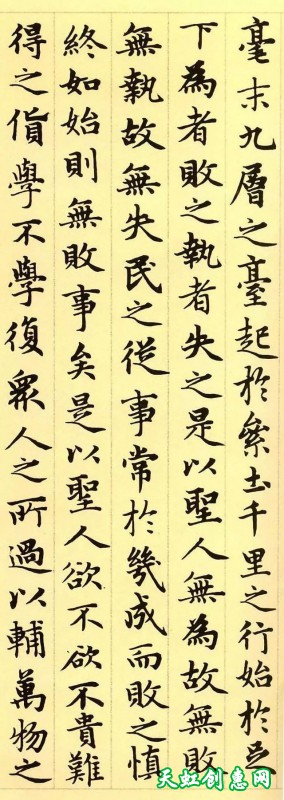 毫末九層之臺起於絫土千里之行始於足
下為者敗之執者失之是以聖人無為故無敗
無執故無失民之從事常於幾成而敗之慎
終如始則無敗事矣是以聖人欲不欲不貴難
得之貨學不學復眾人之所過以輔萬物之
天虹创惠网